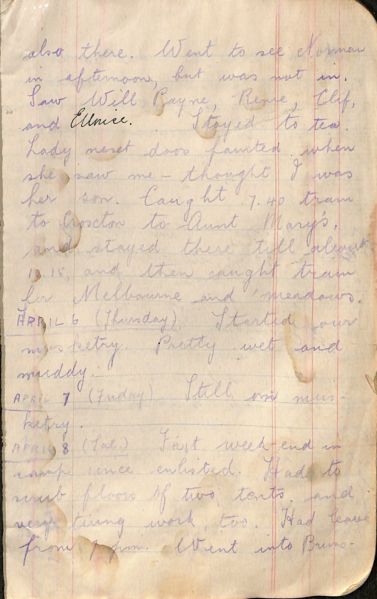 also there. Went to see Norman
in afternoon, but was not in.
Saw Will Payne, Rene, Clif,
and Eunice. Stayed to tea.
Lady next door fainted when
she saw me – thought I was
her son. Caught 7.40 train
to Croxton to Aunt Mary's,
and stayed there till about
and then caught train
for Melbourne and meadows.
APRIL 6 (Thursday) Started our
musketry. Pretty wet and
muddy.
APRIL 7 (Friday) Still on mus-
ketry.
APRIL 8 (Sat.) First week-end in
camp since enlisted. Had to
scrub floors of two tents, and
very tiring work, too. Had leave
from 1 pm. Went into Bruns-